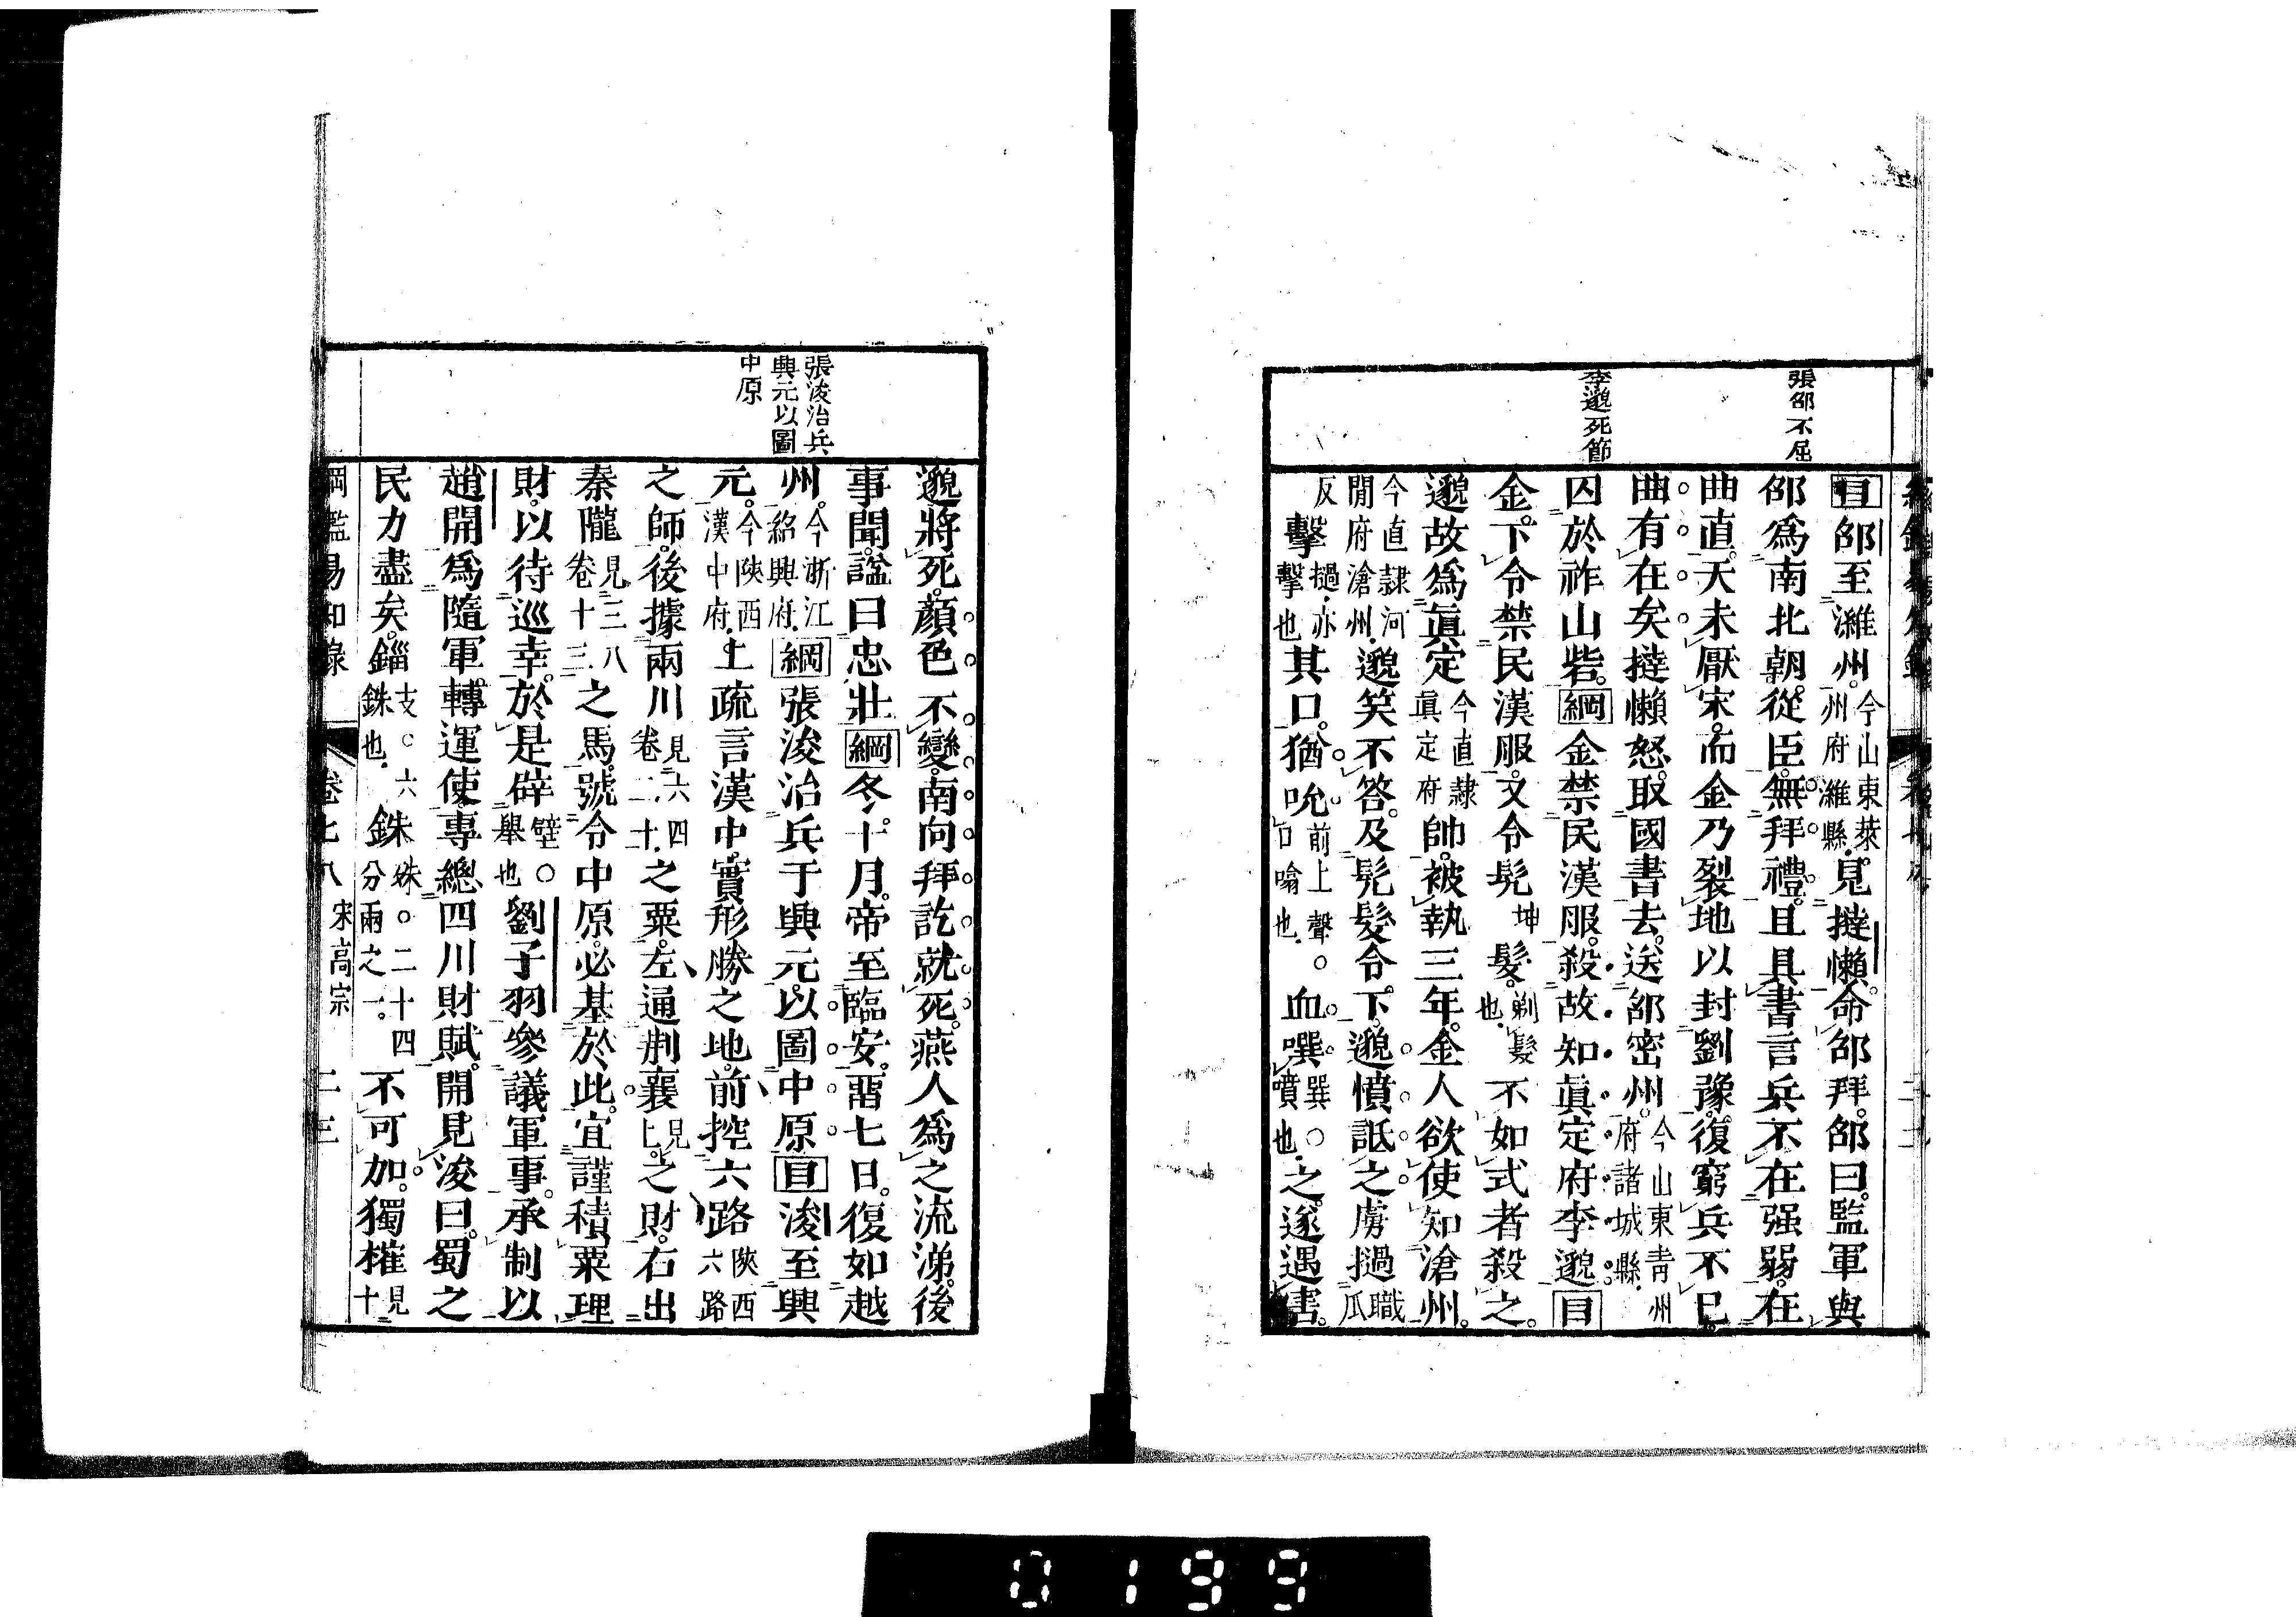 張邵不屈
李邈死節
目邵至濰州今山東萊州府濰縣見撻懶命邵拜邵曰監軍與
邵爲南北朝從臣無拜禮且具書言兵不在强弱在
曲直天未厭宋而金乃裂地以封劉豫復窮兵不已
曲有在矣撻懶怒取國書去送邵密州今山東青州府諸城縣
囚於祚山砦綱金禁民漢服殺故知眞定府李邈目
金下令禁民漢服又令髡坤髮剃髮也不如式者殺之
邈故爲眞定今直隸眞定府帥被執三年金人欲使知滄州
今直隸河閒府滄州邈笑不答及髡髮令下邈憤詆之虜撾職瓜
反擊撾亦擊也其口猶吮前上聲○口噏也血噀巽○噴也之遂遇害
張浚治兵
興元以圖
中原
邈將死顏色不變南向拜訖就死燕人爲之流涕後
事聞謚曰忠壯綱冬十月帝至臨安畱七日復如越
州今浙江紹興府綱張浚治兵于興元以圖中原目浚至興
元今陝西漢中府上疏言漢中實形勝之地前控六路陝西六路
之師後據兩川見六四卷二十之粟左通荆襄見上之財右出
秦隴見三八卷十三之馬號令中原必基於此宜謹積粟理
財以待巡幸於是辟壁○舉也劉子羽參議軍事承制以
趙開爲隨軍轉運使專總四川財賦開見浚曰蜀之
民力盡矣錙支○六銖也銖殊○二十四分兩之一不可加獨榷見十
綱鑑易知錄 卷七八 宋高宗 二三